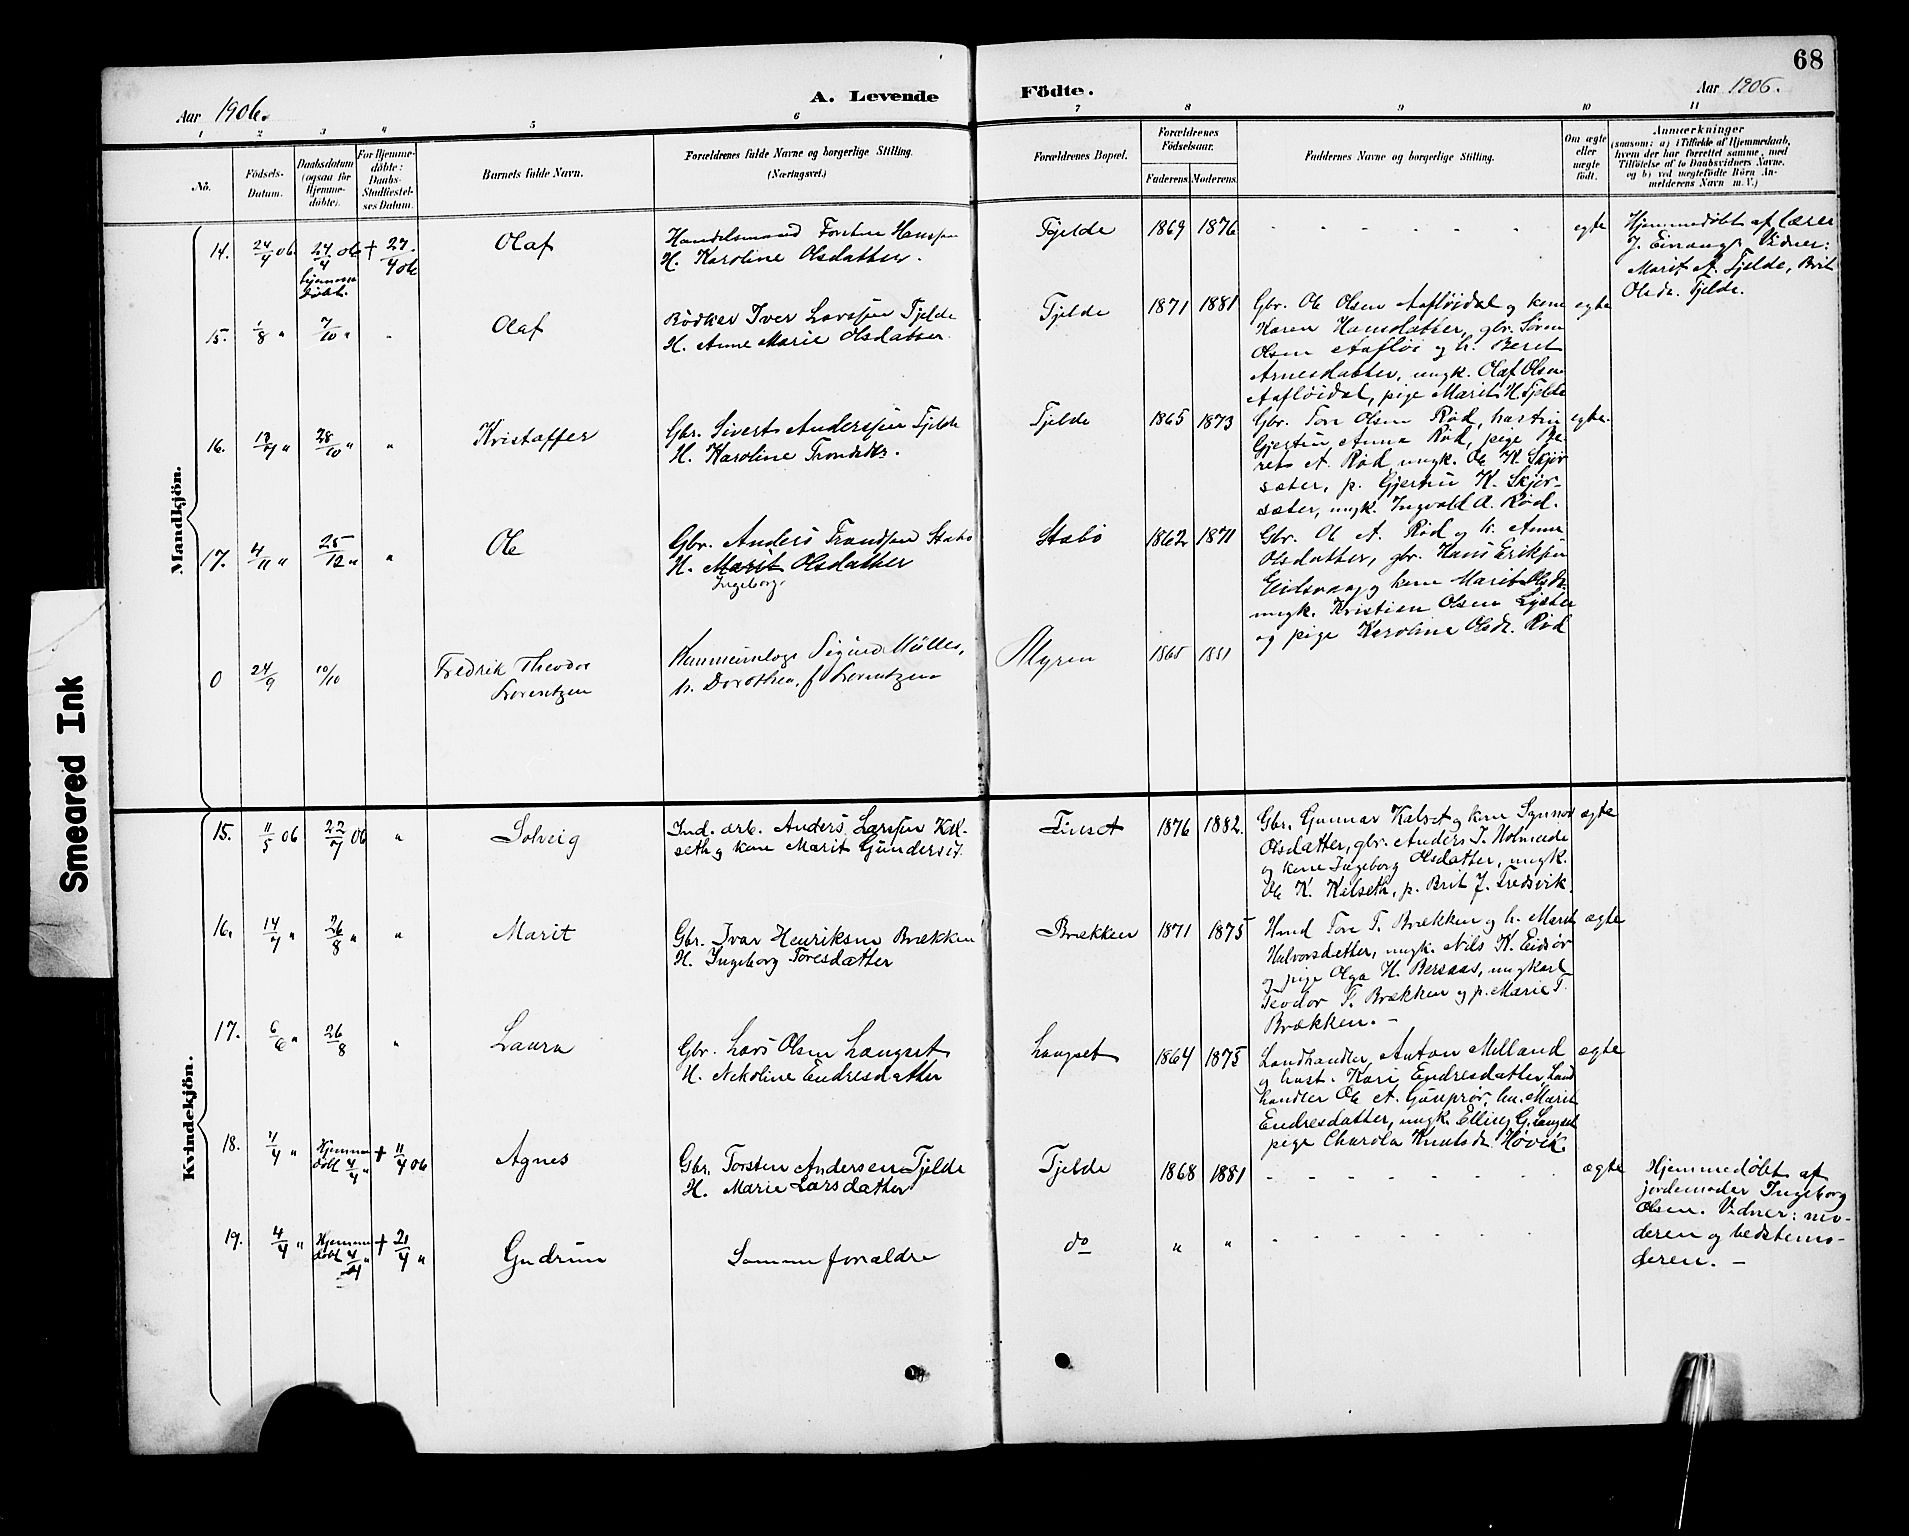 68
Aar 1906.
A. Levende Födte.
Aar 1906.
1 2 3 4 5 6 7 8 9 10 11
No.
Födsels-
Datum.
Daabsdatum
(ogsaa for
Hjemme-
döbte).
For Hjemme-
döbte:
Daabs-
Stadfæstel-
ses Datum.
Barnets fulde Navn.
Forældrenes fulde Navne og borgerlige Stilling.
(Næringsvei.)
Forældrenes Bopæl.
Forældrenes
Födselsaar.
Faderens.
Moderens.
Faddernes Navne og borgerlige Stilling.
Om ægte
eller
uægte
födt.
Anmærkninger
(saasom: a) i Tilfælde af Hjemmedaab,
hvem der har forrettet samme, med
Tilföielse af to Daabsvidners Navne,
og b) ved uægtefödte Börn An-
melderens Navn m. V.)
Mandkjön.
14. 24/4 06. 24/4 06 hjemme døbt. + 27/4 06
Olaf
Handelsmand Torsten Hanssen
H. Karoline Olsdatter.
Fjelde 1869 1876 egte
Hjemmedøbt af lærer
J. Einang. Vidner:
Marit A. Fjelde, Brit
Olsdr. Fjelde.
15. 1/8 " 7/10 " "
Olaf
Bødker Iver Larssen Fjelde
H. Anne Marie Olsdatter
Fjelde 1871 1881
Gbr. Ole Olsen Aafløidal og kone
Karen Hansdatter, gbr. Søren
Olsen Aafløi og h. Beret
Arnesdatter, ungk. Olaf Olsen
Aafløidal, pige Marit H. Fjelde
egte
16. " 28/10 " "
Kristoffer
Gbr. Sivert Anderssen Fjelde
H. Karoline Trondsdtr.
Fjelde 1865 1873
Gbr. Tore Olsen Rød, hustru
Gjertin Anna Rød, pige Be-
ret A. Rød, ungk. Ole K. Skjør-
sæter, p. Gjertin K. Skjør-
sæter, ungk. Ingvald A. Rød.
egte.
17. 4/11 " 25/12 " "
Ole
Gbr. Anders Trondsen Stabø
H. Marit Olsdatter
Ingeborg
Stabø 1862 1871
Gbr. Ole A. Rød og h. Anne
Olsdatter, gbr. Hans Eriksen
Eidsvaag og kone Marit Olsdr.
ungk. Kristian Olsen
og pige Karoline Olsdr. Rød
0 24/9 10/10
Fredrik Theodor
Lorentzen
Sigurd Müller,
h. Dorothea, f. Lorentzen
Myren 1865
Kvindekjön.
15. 11/5 06 22/7 06 "
Solveig
Ind. arb. Anders Larssen Kal-
seth og kone Marit
Tiuset 1876 1882.
Gbr. Gunnar Kalset og kone Synnøv
Olsdatter, gbr. Anders J. Holmeide
og kone Ingeborg Olsdatter, ungk.
Ole K. Kalseth, p. Brit J. Fredsvik.
ægte
16. 14/7 " 26/8 " "
Marit
Gbr. Ivar Henriksen Brækken
H. Ingeborg Toresdatter
Brækken 1871 1875
Hmd Tore T. Brækken og h. Marit
Halvorsdatter, ungk. Nils K. Eidsør
og pige Olga H. Bersaas, ungkarl
Teodor T. Brækken og p. Marie T.
Brækken. –
ægte
17. 6/6 " 26/8 "
Laura
Gbr. Lars Olsen Langset
H. Nikoline Endresdatter
Langset 1864 1875
Landhandler Anton Melland
og hust. Kari Endresdatter, Land
handler Ole A. hu. Marit
Endresdatter, ungk. Elling G. Langset
pige Charola Knutsdr. Høvik.
ægte
18. 4/4 " Hjemme døbt 4/4 " + 11/4 06
Agnes
Gbr. Torsten Andersen Fjelde
H. Marie Larsdatter
Fjelde 1868 1881
ægte
Hjemmedøbt af
jordemoder Ingeborg
Olsen. Vidner: mo-
deren og bedstemo-
deren. –
19. 4/4 " Hjemme døbt 4/4 " + 21/4 "
Gudrun
Samme forældre
do " "
Smeared Ink